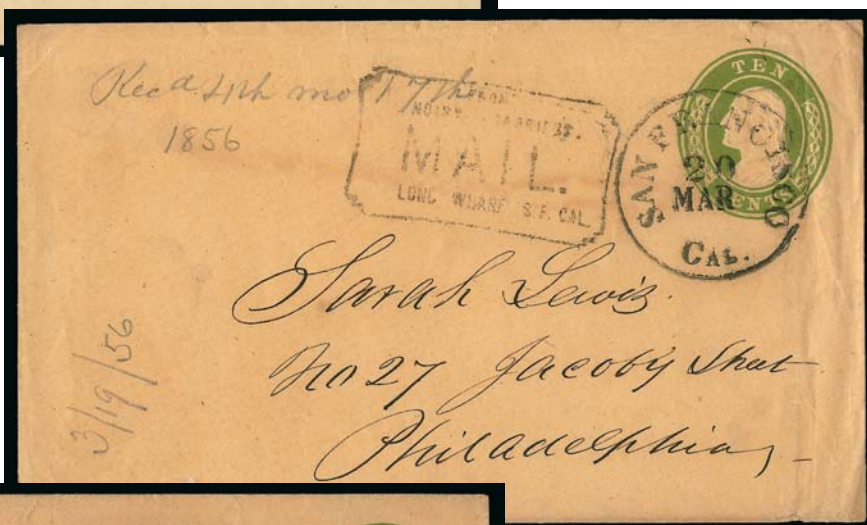 Recd 4th mo 17th
1856
FROM
NOISY CARRIERS.
MAIL.
LONG WHARF S.F. CAL.
TEN
CENTS
SAN FRANCISCO
20
MAR
CAL.
Sarah Lewis.
No 27 Jacoby Street
Philadelphia
3/19/56